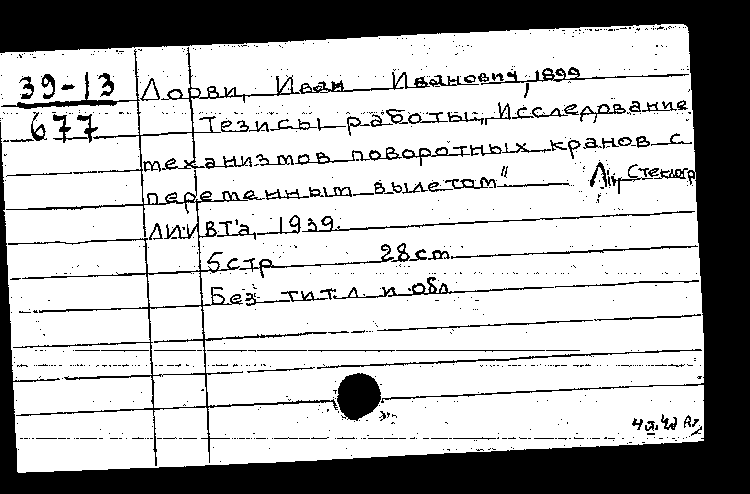 39-13
677
Лорви, Иван Иванович, 1899
Тезисы работы: „Исследование
механизмов поворотных кранов с
переменным вылетом" Л., Стеклогр
ЛИИВТ'а, 1939.
5 стр 28 см.
Без тит. л. и обл.